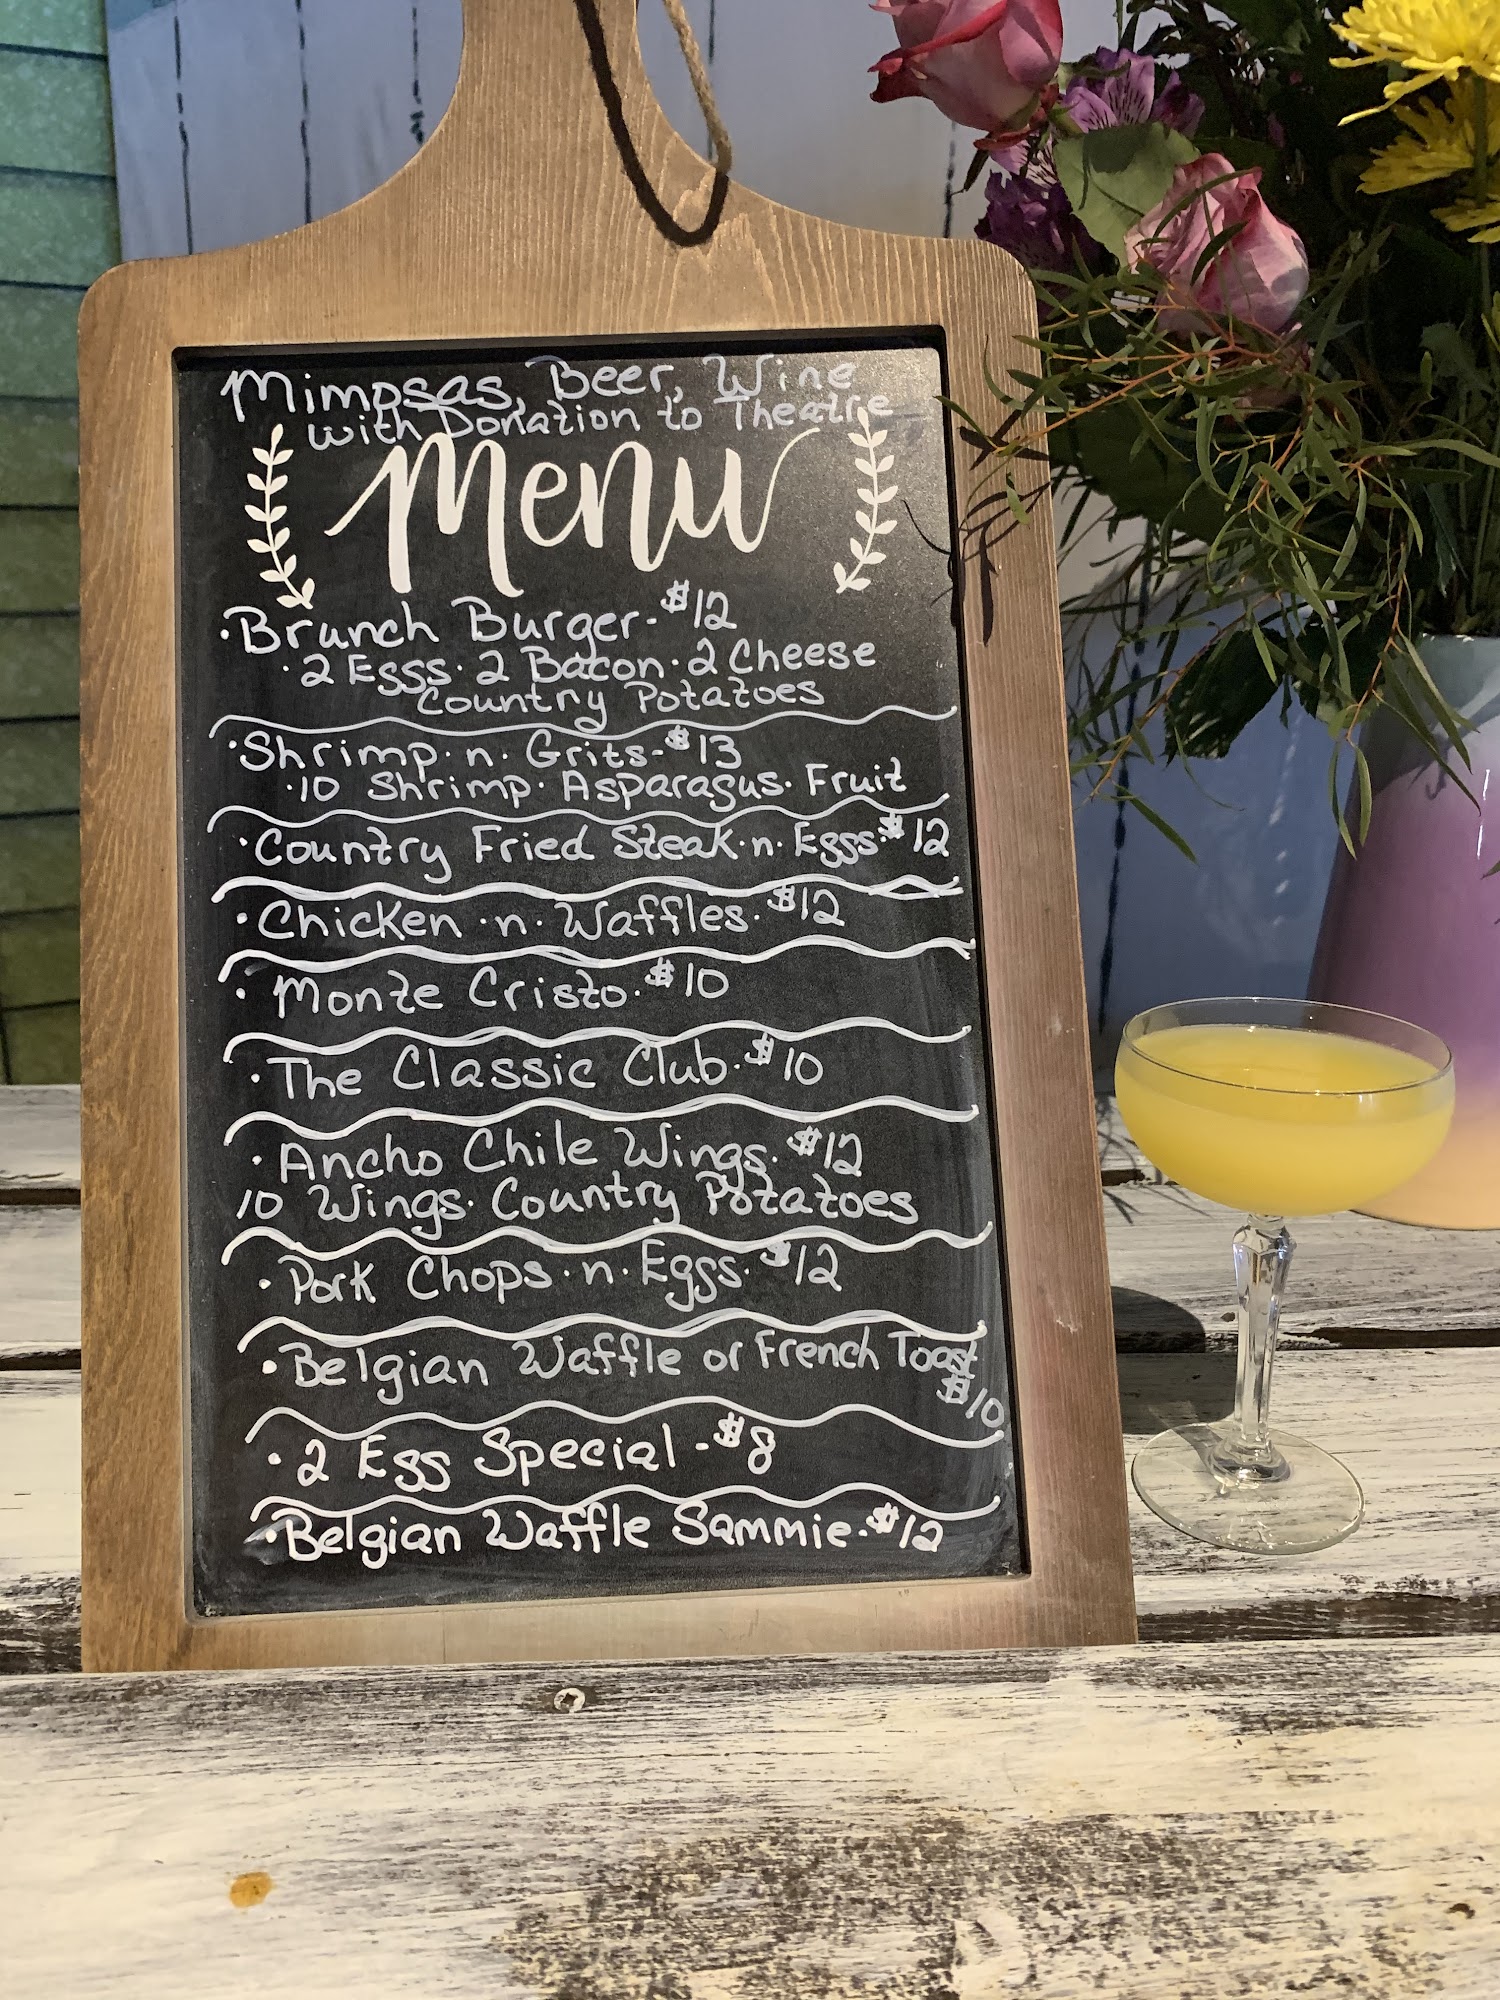 Mimosas, Beer, Wine
with Donation to Theatre
Menu
·Brunch Burger-$12
·2 Eggs·2 Bacon·2 Cheese
Country Potatoes
·Shrimp·n·Grits-$13
·10 Shrimp·Asparagus·Fruit
·Country Fried Steak·n·Eggs·$12
·Chicken·n·Waffles·$12
·Monte Cristo·$10
·The Classic Club·$10
·Ancho Chile Wings·$12
10 Wings·Country Potatoes
·Pork Chops·n·Eggs·$12
·Belgian Waffle or French Toast
$10
·2 Egg Special-$8
·Belgian Waffle Sammie·$12